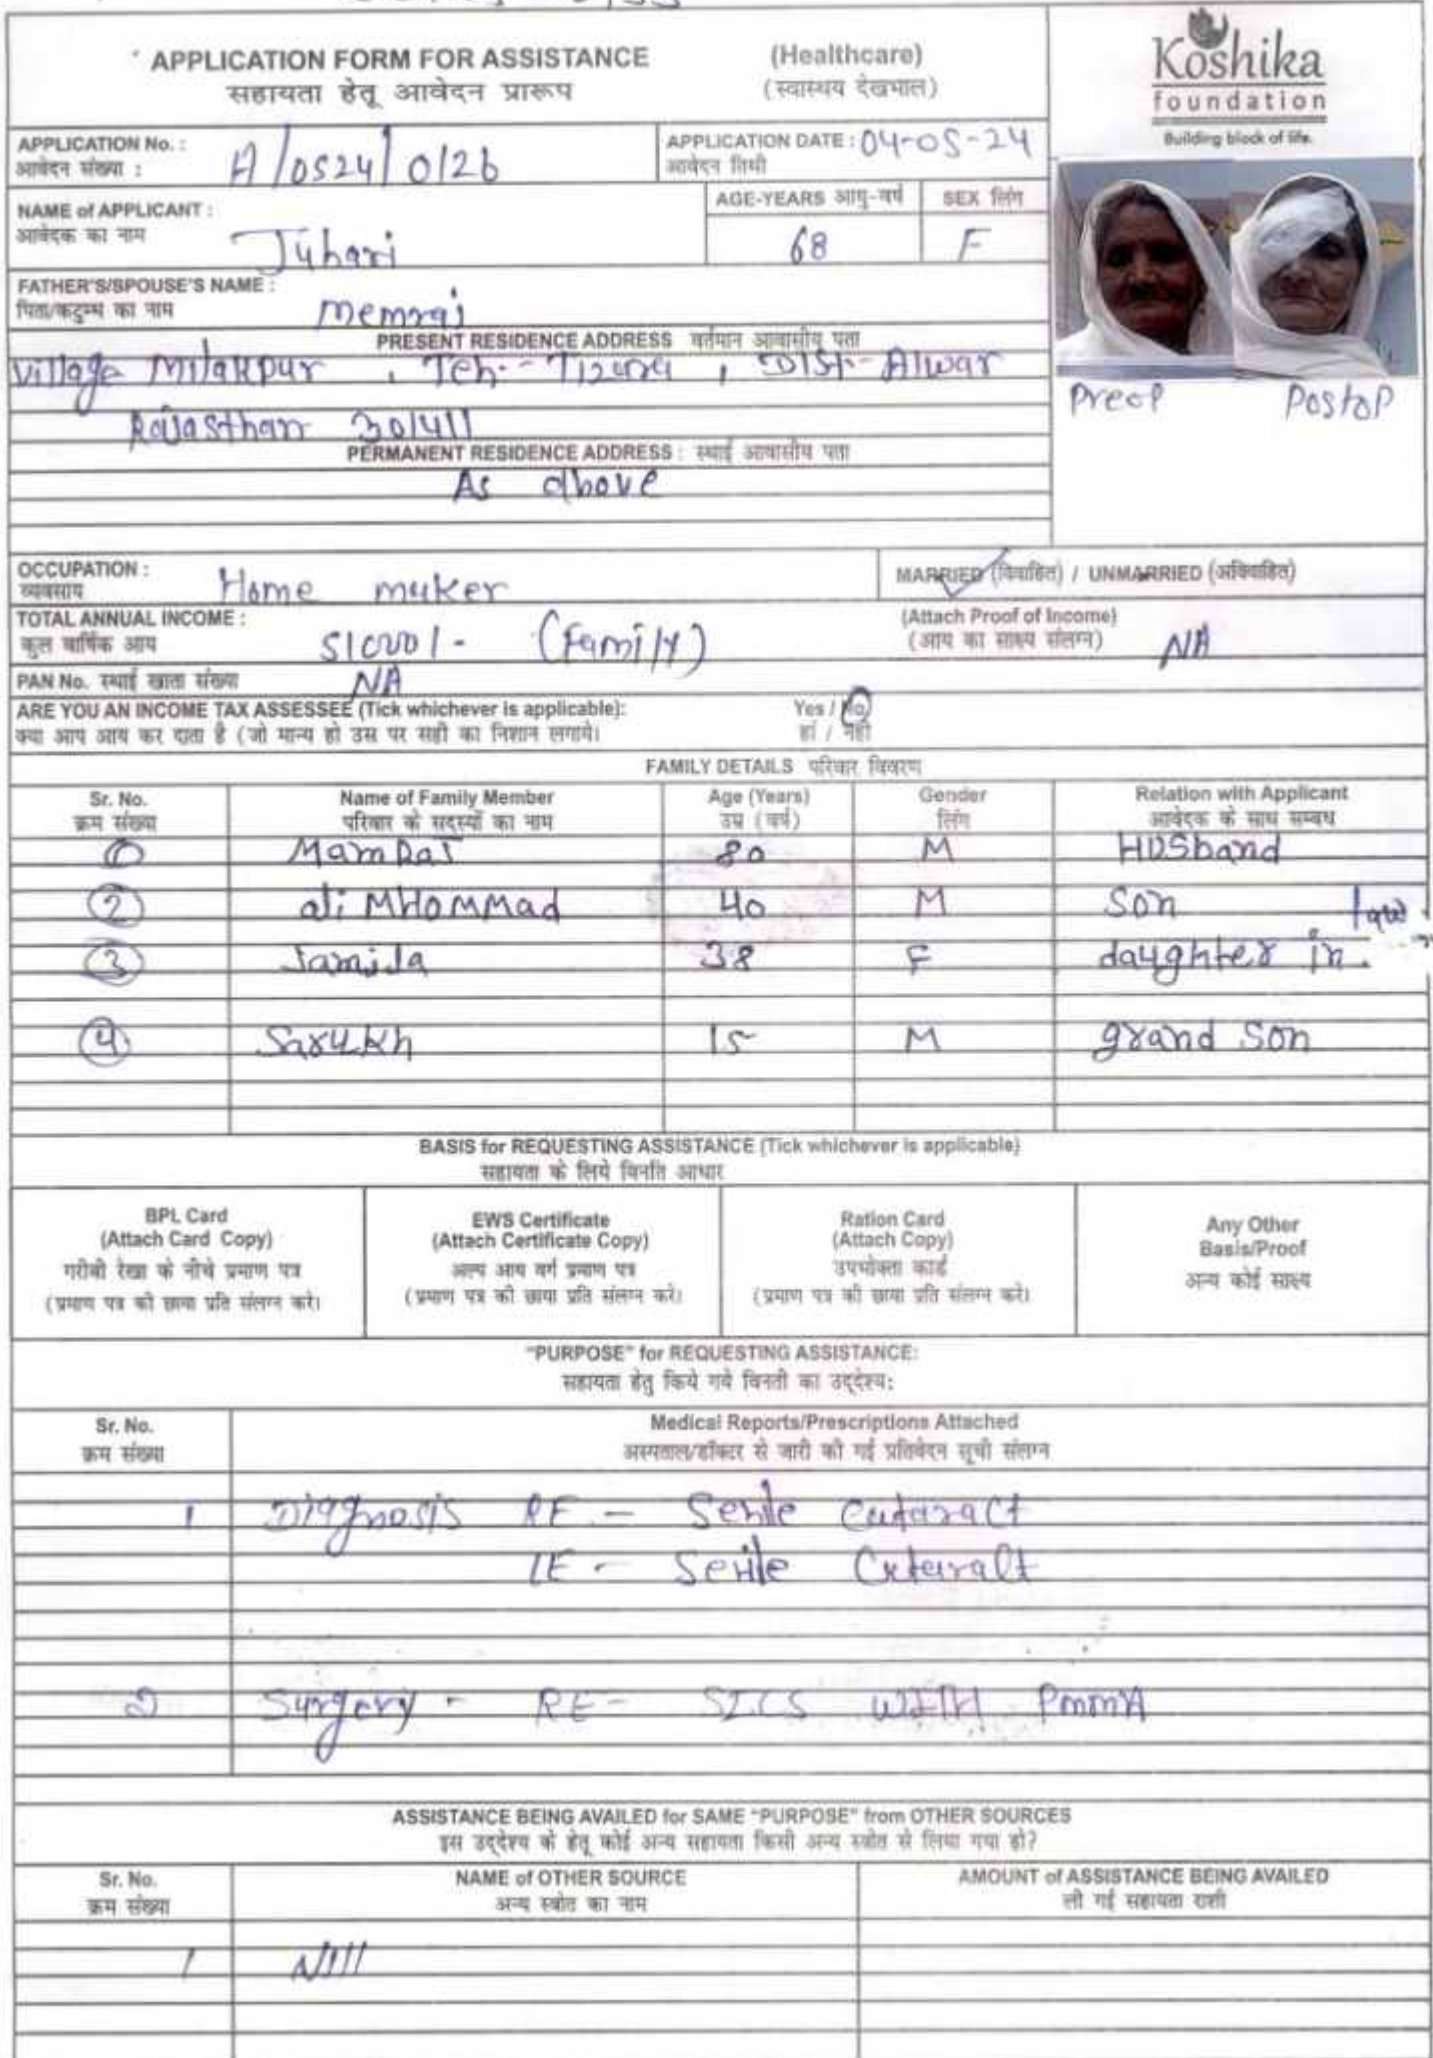 APPLICATION FORM FOR ASSISTANCE (Healthcare)
सहायता हेतू आवेदन प्रारूप (स्वास्थय देखभाल)
Koshika
foundation
Building block of life.
APPLICATION No. : A/0524/0126
आवेदन संख्या :
APPLICATION DATE : 04-05-24
आवेदन तिथी
NAME of APPLICANT : Juhari
आवेदक का नाम
AGE-YEARS आयु-वर्ष 68
SEX लिंग F
FATHER'S/SPOUSE'S NAME : memraj
पिता/कटुम्ब का नाम
Preop Postop
PRESENT RESIDENCE ADDRESS वर्तमान आवासीय पता
Village Milakpur , Teh.- , Dist- Alwar
Rajasthan 301411
PERMANENT RESIDENCE ADDRESS : स्थाई आवासीय पता
As above
OCCUPATION : Home maker
व्यवसाय
MARRIED (विवाहित) / UNMARRIED (अविवाहित)
TOTAL ANNUAL INCOME : (Family)
कुल वार्षिक आय
(Attach Proof of Income) NA
(आय का साक्ष्य संलग्न)
PAN No. स्थाई खाता संख्या NA
ARE YOU AN INCOME TAX ASSESSEE (Tick whichever is applicable): Yes / No
क्या आप आय कर दाता है (जो मान्य हो उस पर सही का निशान लगाये। हां / नहीं
FAMILY DETAILS परिवार विवरण
Sr. No. Name of Family Member Age (Years) Gender Relation with Applicant
क्रम संख्या परिवार के सदस्यों का नाम उम्र (वर्ष) लिंग आवेदक के साथ सम्बध
1 MamRaj 80 M HUSband
2 ali MHommad 40 M Son
3 Jamila 38 F daughter in law
4 Sarukh 15 M grand son
BASIS for REQUESTING ASSISTANCE (Tick whichever is applicable)
सहायता के लिये विनति आधार
BPL Card
(Attach Card Copy)
गरीबी रेखा के नीचे प्रमाण पत्र
(प्रमाण पत्र की छाया प्रति संलग्न करे।
EWS Certificate
(Attach Certificate Copy)
अल्प आय वर्ग प्रमाण पत्र
(प्रमाण पत्र की छाया प्रति संलग्न करे।
Ration Card
(Attach Copy)
उपभोक्ता कार्ड
(प्रमाण पत्र की छाया प्रति संलग्न करे।
Any Other
Basis/Proof
अन्य कोई साक्ष्य
"PURPOSE" for REQUESTING ASSISTANCE:
सहायता हेतु किये गये विनती का उद्देश्य:
Sr. No. Medical Reports/Prescriptions Attached
क्रम संख्या अस्पताल/डॉक्टर से जारी की गई प्रतिवेदन सूची संलग्न
1 Diagnosis RE - Senile Cataract
LE - Senile Cataract
2 Surgery - RE - SICS WITH PmmA
ASSISTANCE BEING AVAILED for SAME "PURPOSE" from OTHER SOURCES
इस उद्देश्य के हेतू कोई अन्य सहायता किसी अन्य स्त्रोत से लिया गया हो?
Sr. No. NAME of OTHER SOURCE AMOUNT of ASSISTANCE BEING AVAILED
क्रम संख्या अन्य स्त्रोत का नाम ली गई सहायता राशी
1 Nill